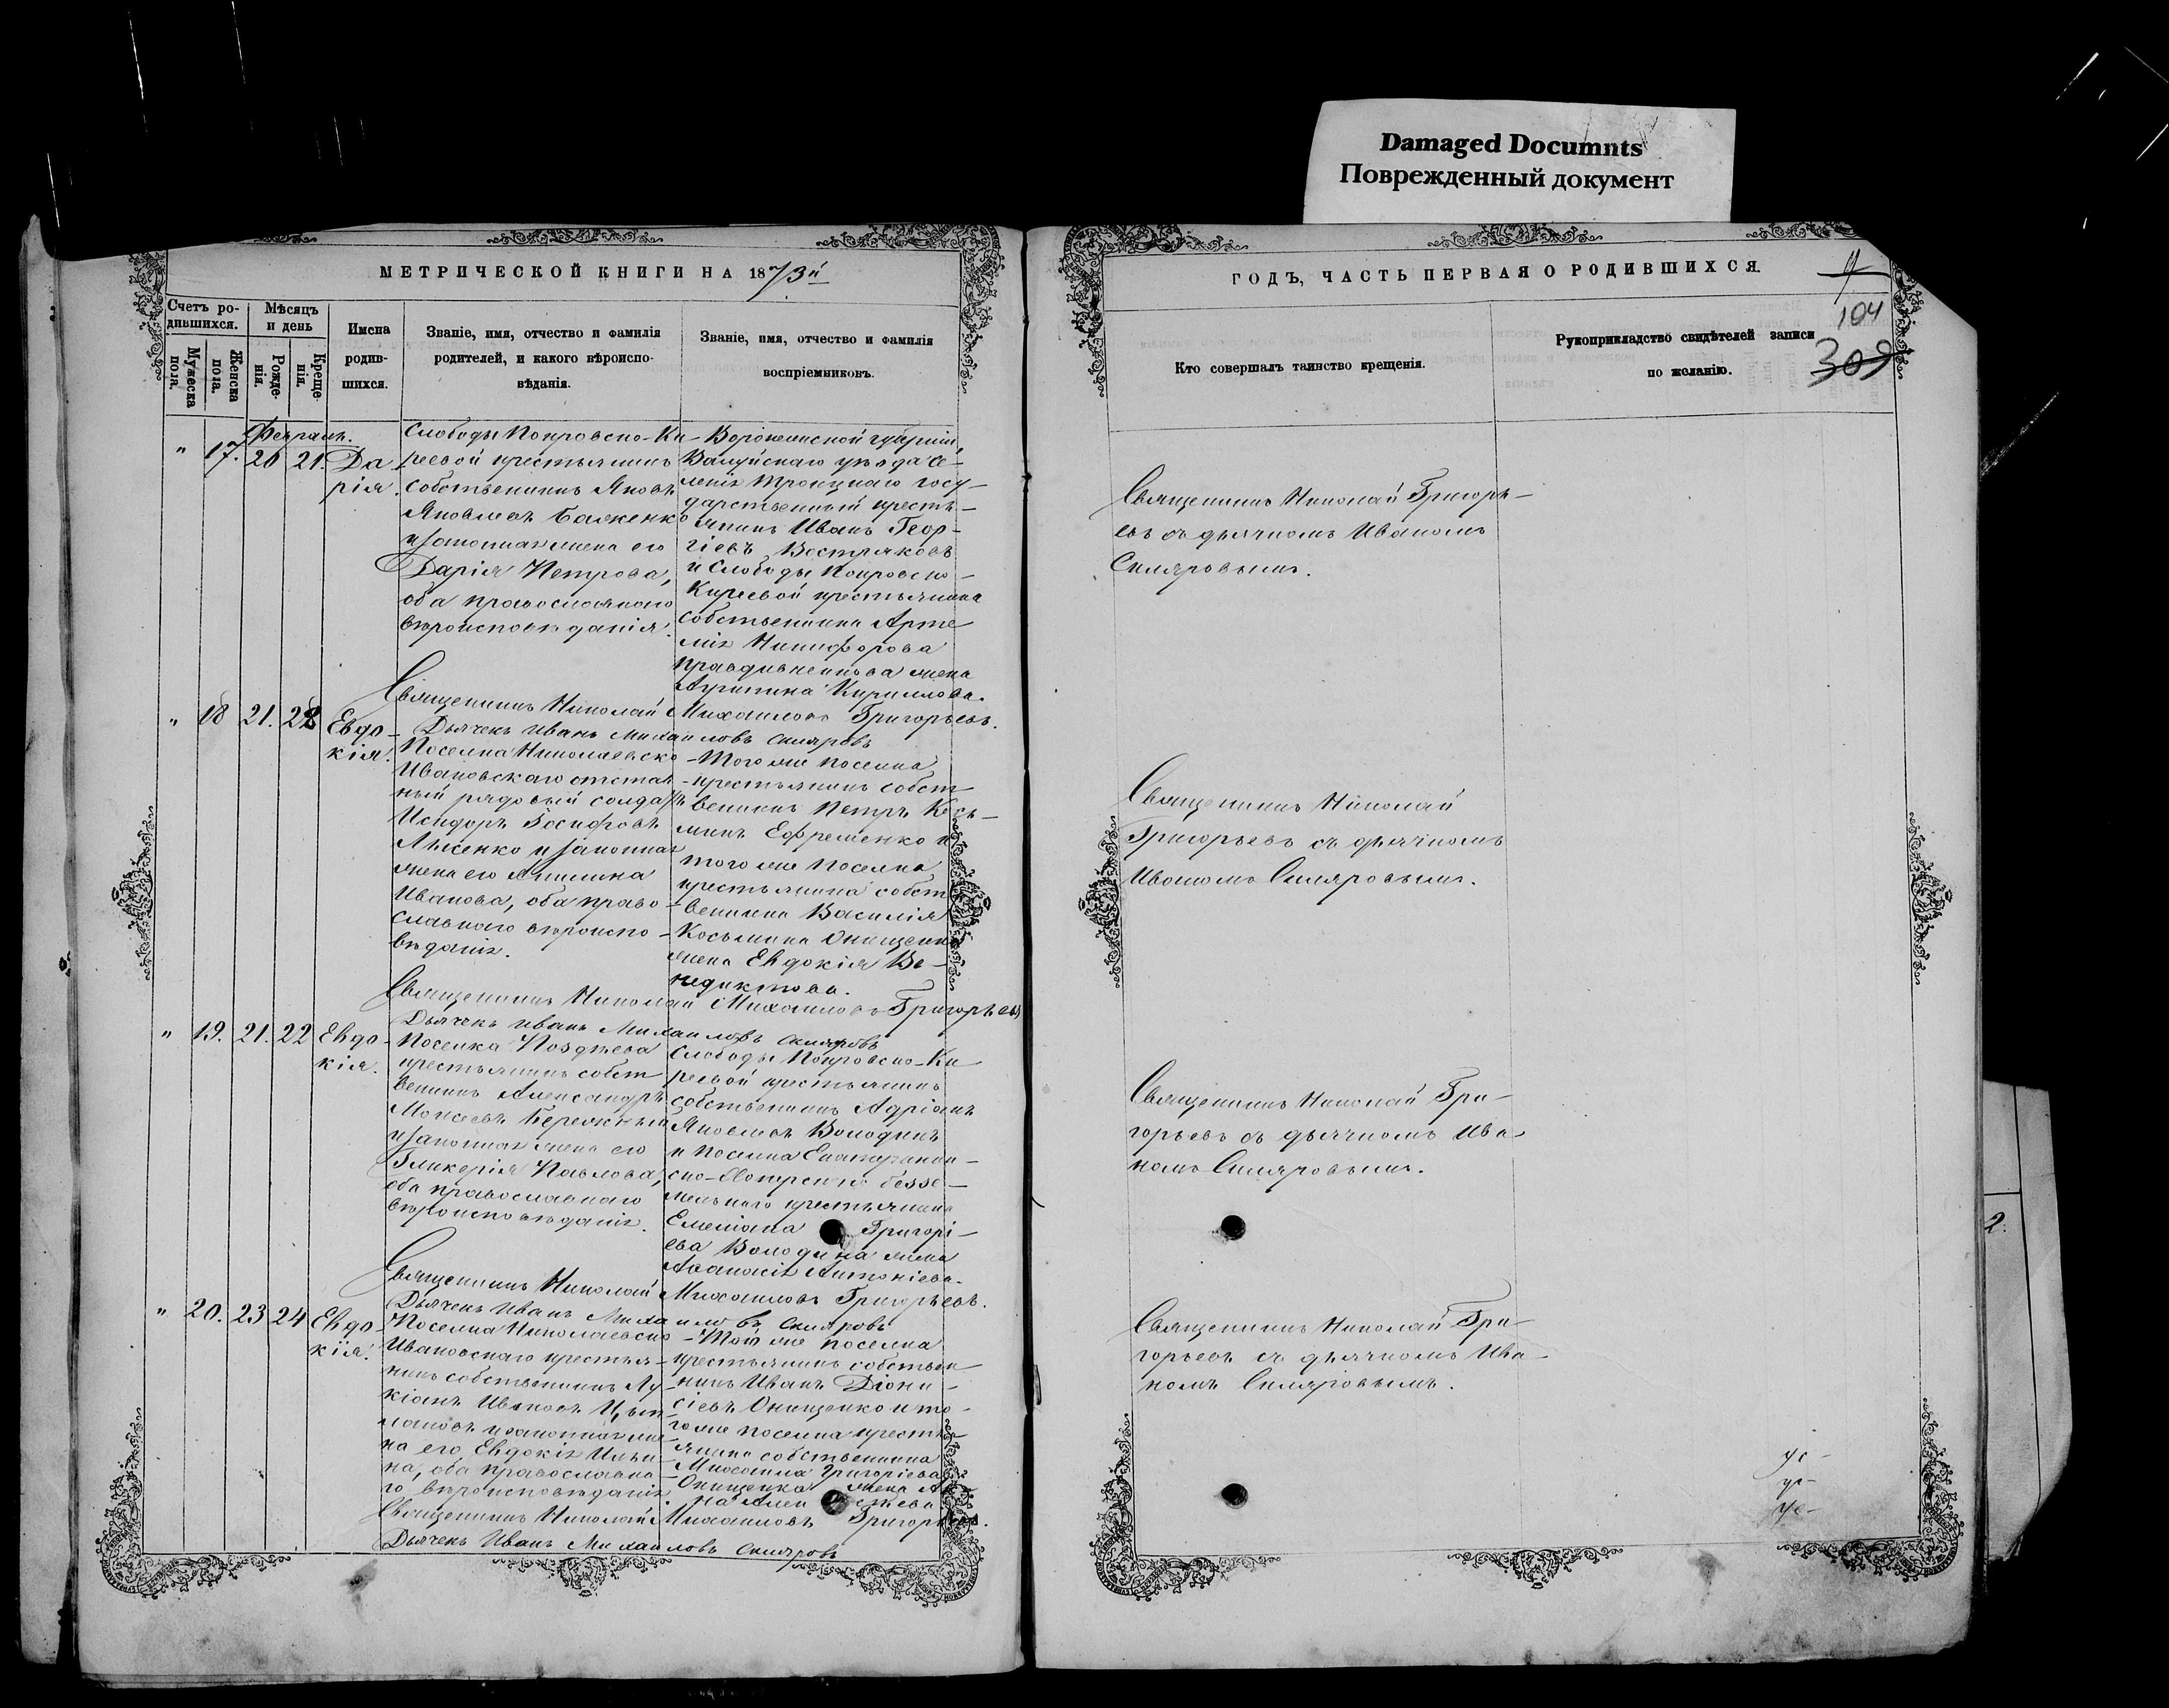 Damaged Documnts
Поврежденный документ
МЕТРИЧЕСКОЙ КНИГИ НА 1873й
Счетъ ро-
дившихся.
Мужеска
пола.
Женска
пола.
Мѣсяцъ
и день
Рожде-
нія.
Креще-
нія.
Имена
родив-
шихся.
Званіе, имя, отчество и фамилія
родителей, и какого вѣроиспо-
вѣданія.
Званіе, имя, отчество и фамилія
воспріемниковъ.
Февраль.
" 17. 20 21. Да-
рія.
Слободы Покровско-Ки-
реевой крестьянинъ
собственникъ Яковъ
Яковлевъ Баженко
и законная жена его
Дарія Петрова,
оба православнаго
вѣроисповѣданія.
Воронежской губерніи,
Валуйскаго уѣзда се-
ленія Троицкаго госу-
дарственный кресть-
янинъ Иванъ Геор-
гіевъ Востряковъ
и Слободы Покровско-
Киреевой крестьянина
собственника Арте
мія Никифорова
жена
Кириллова.
Священникъ Николай Михаиловъ Григорьевъ.
Дьячекъ Иванъ Михаиловъ Скляровъ
" 18 21. 22 Евдо-
кія.
Поселка Николаевско-
Ивановскаго отстав-
ный рядовый солдатъ
Исидоръ Іосифовъ
и законная
жена его Акилина
Иванова, оба право-
славнаго вѣроиспо-
вѣданія.
Того же поселка
крестьянинъ собст
венникъ Петръ Кось-
минъ Ефременко и
того же поселка
крестьянина собст
венника Василія
Косьмина Онищенка
жена Евдокія Ве-
недиктова.
Священникъ Николай Михаиловъ Григорьевъ
Дьячекъ Иванъ Михаиловъ Скляровъ
" 19. 21. 22 Евдо-
кія.
Поселка Позднева
крестьянинъ собст
венникъ Александръ
Моисеевъ Бережный
и законная жена его
Гликерія Павлова,
оба православнаго
вѣроисповѣданія.
Слободы Покровско-Ки
реевой крестьянинъ
собственникъ Адріанъ
Яковлевъ Володинъ
и поселка Екатеринин-
безземельнаго крестьянина
Емеліана Григорі-
ева Володина жена
Аѳанасія Антоніева.
Священникъ Николай Михаиловъ Григорьевъ.
Дьячекъ Иванъ Михаиловъ Скляровъ
" 20. 23 24 Евдо-
кія.
Поселка Николаевско
Ивановскаго крестья-
нинъ собственникъ Лу-
кіанъ Ивановъ
и законная же
на его Евдокія Ильи-
на, оба православна-
го вѣроисповѣданія
Того же поселка
крестьянинъ собствен
никъ Иванъ Діони-
сіевъ Онищенко и то-
го же поселка кресть-
янина собственника
Михаила Григоріева
Онищенка жена
Священникъ Николай Михаиловъ Григорьевъ.
Дьячекъ Иванъ Михаиловъ Скляровъ
ГОДЪ, ЧАСТЬ ПЕРВАЯ О РОДИВШИХСЯ.
104
309
Кто совершалъ таинство крещенія.
Рукоприкладство свидѣтелей записи
по желанію.
Священникъ Николай Григорь-
евъ съ дьячкомъ Иваномъ
Скляровымъ.
Священникъ Николай
Григорьевъ съ дьячкомъ
Иваномъ Скляровымъ.
Священникъ Николай Гри-
горьевъ съ дьячкомъ Ива
номъ Скляровымъ.
Священникъ Николай Гри-
горьевъ съ дьячкомъ Ива-
номъ Скляровымъ.
2.